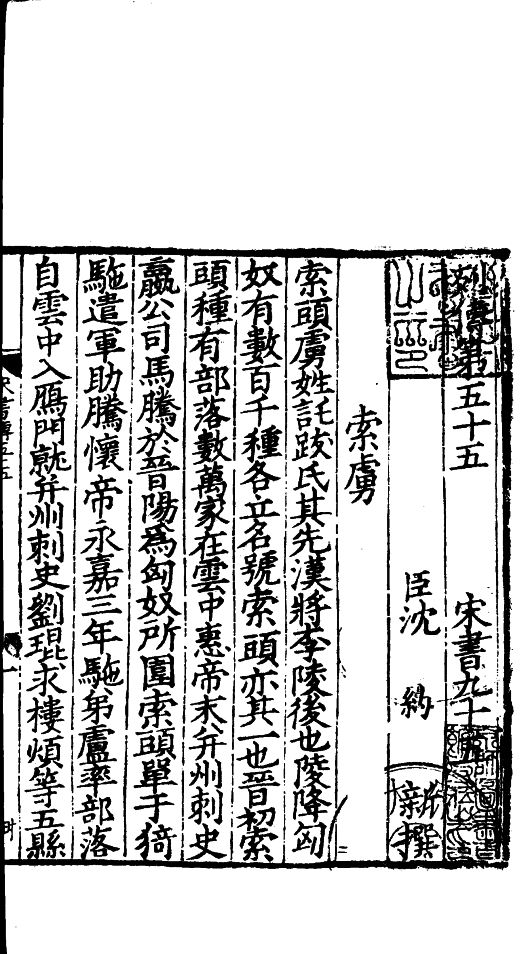 列傳第五十五 宋書九十五
臣沈 約 新撰
索虜
索頭虜姓託跋氏其先漢將李陵後也陵降匈
奴有數百千種各立名號索頭亦其一也晉初索
頭種有部落數萬家在雲中惠帝末并州刺史東
嬴公司馬騰於晉陽爲匈奴所圍索頭單于猗
駞遣軍助騰懷帝永嘉三年駞弟盧率部落
自雲中入鴈門就并州刺史劉琨求樓煩等五縣
宋書傳五十五
一